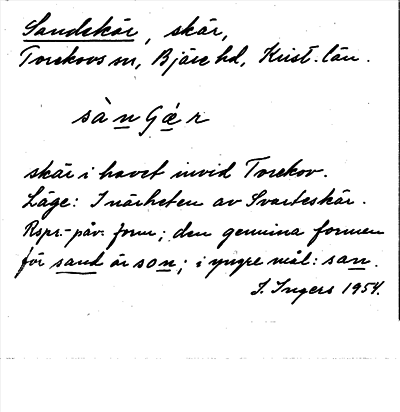 Sandskär, skär,
Torekovs sn, Bjäre hd, Krist. län.
sànGǽr
skär i havet invid Torekov.
Läge: I närheten av Svarteskär.
Rspr.-påv. form; den genuina formen
för sand är son; i yngre mål: san.
I. Ingers 1954.